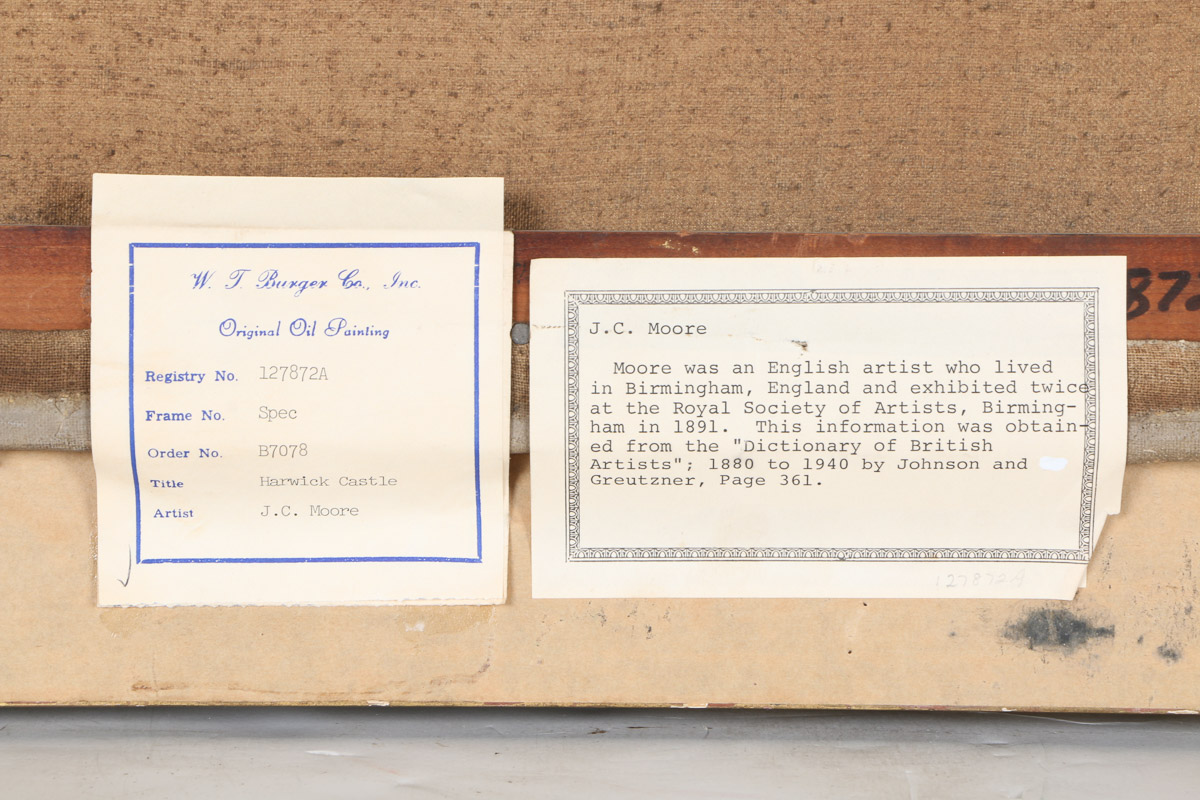 W. T. Burger Co., Inc.
Original Oil Painting
Registry No. 127872A
Frame No. Spec
Order No. B7078
Title Harwick Castle
Artist J.C. Moore
J.C. Moore
Moore was an English artist who lived
in Birmingham, England and exhibited twice
at the Royal Society of Artists, Birming-
ham in 1891. This information was obtain-
ed from the "Dictionary of British
Artists"; 1880 to 1940 by Johnson and
Greutzner, Page 361.
127872A
872